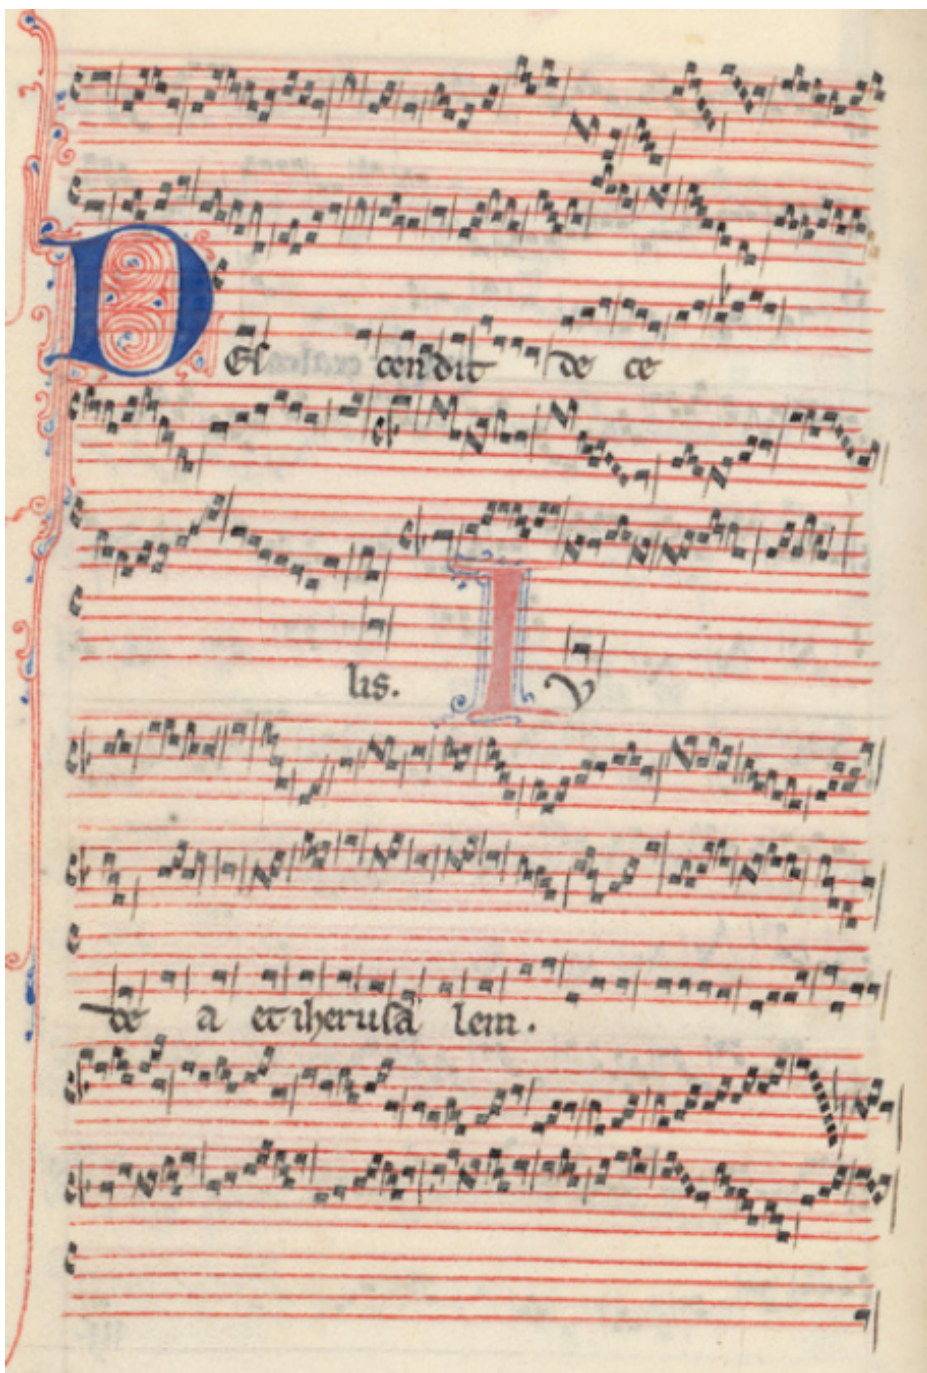 DEſ cendit de ce
lis. I V
de a et iheruſa lem.